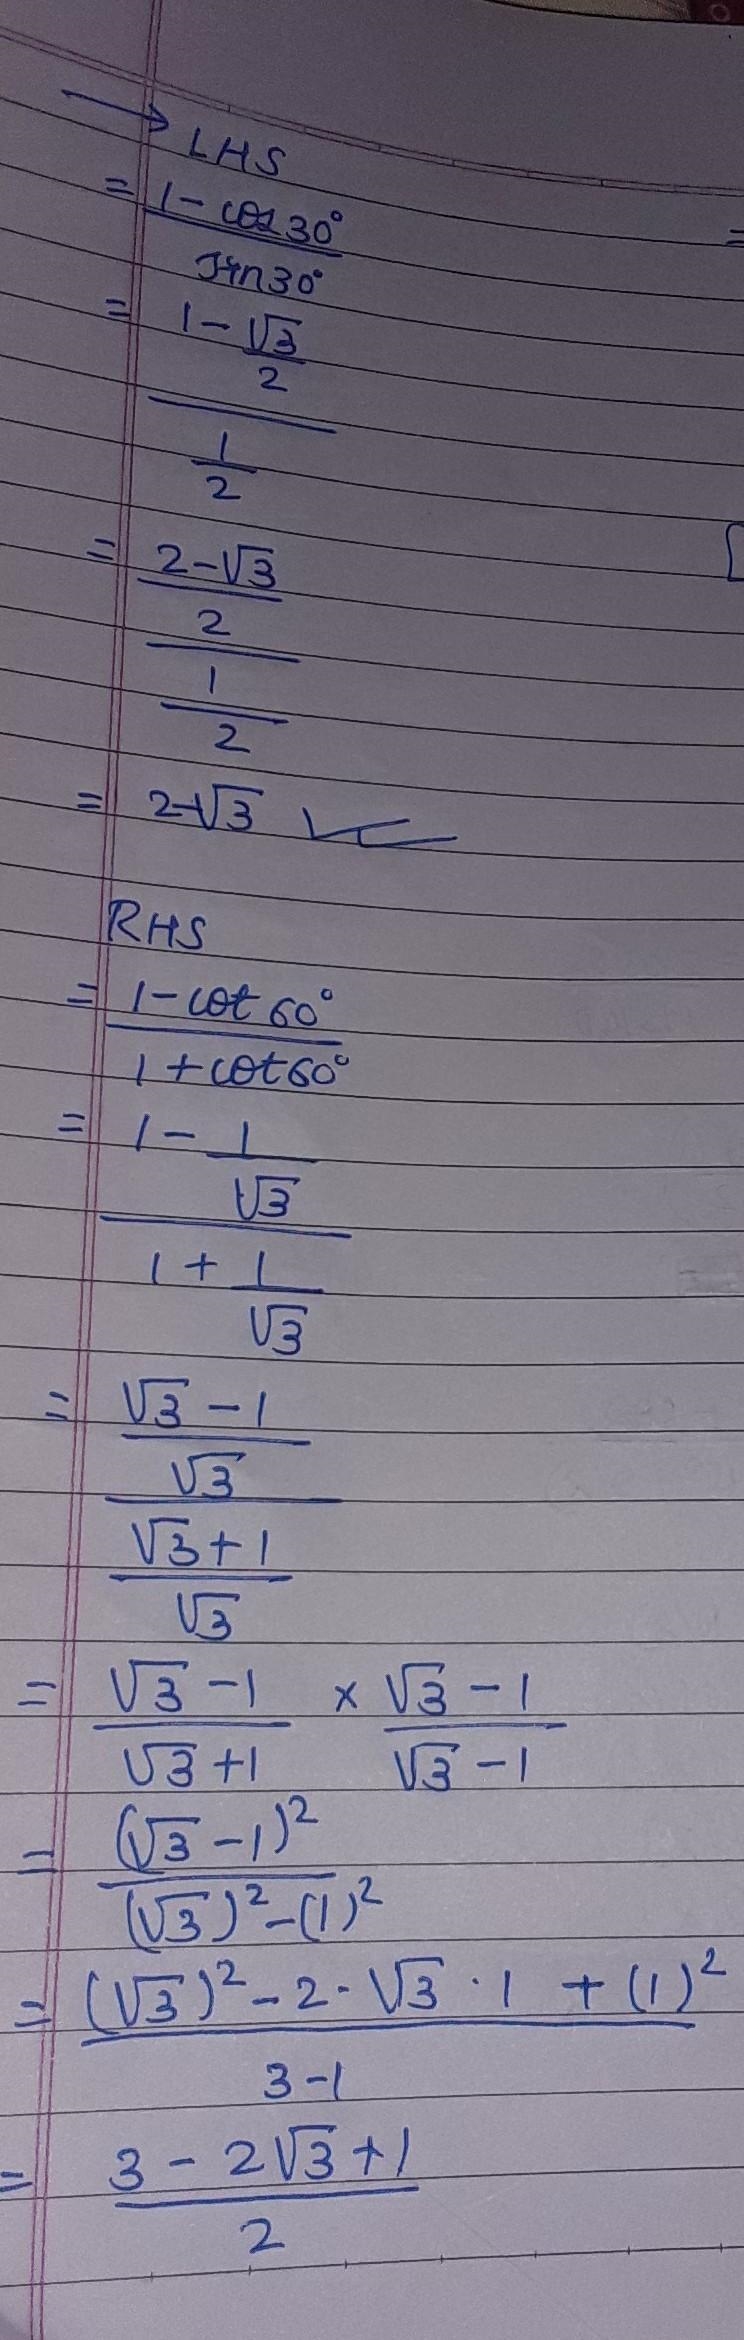 → LHS
= 1 - cos 30°
sin 30°
= 1 - √3
2
1
2
= 2 - √3
2
1
2
= 2 - √3 ✓
RHS
= 1 - cot 60°
1 + cot 60°
= 1 - 1
√3
1 + 1
√3
= √3 - 1
√3
√3 + 1
√3
= √3 - 1 × √3 - 1
√3 + 1 √3 - 1
= (√3 - 1)²
(√3)² - (1)²
= (√3)² - 2 · √3 · 1 + (1)²
3 - 1
= 3 - 2√3 + 1
2